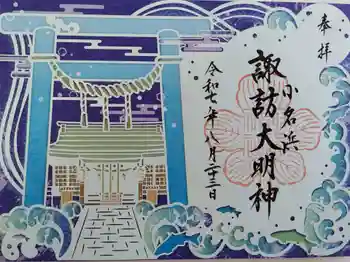 奉拝
小名浜
諏訪大明神
令和七年八月二十三日